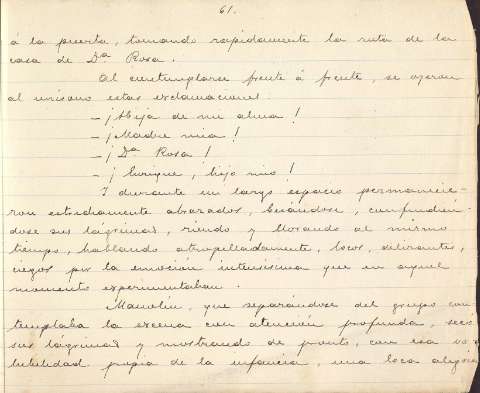 61.
á la puerta, tomando rapidamente la ruta de la
casa de Dª Rosa.
Al contemplarse frente á frente, se oyeron
al unisono estas exclamaciones:
- ¡Hija de mi alma!
- ¡Madre mia!
- ¡Dª Rosa!
- ¡Enrique, hijo mio!
I durante un largo espacio permanecie-
ron estrechamente abrazados, besándose, confundien-
dose sus lagrimas, riendo y llorando al mismo
tiempo, hablando atropelladamente, locos, delirantes,
ciegos por la emoción intensisima que en aquel
momento experimentaban.
Manolin, que separándose del grupo con-
templaba la escena con atención profunda, secó
sus lagrimas y mostrando de pronto, con esa vo
lubilidad propia de la infancia, una loca alegria